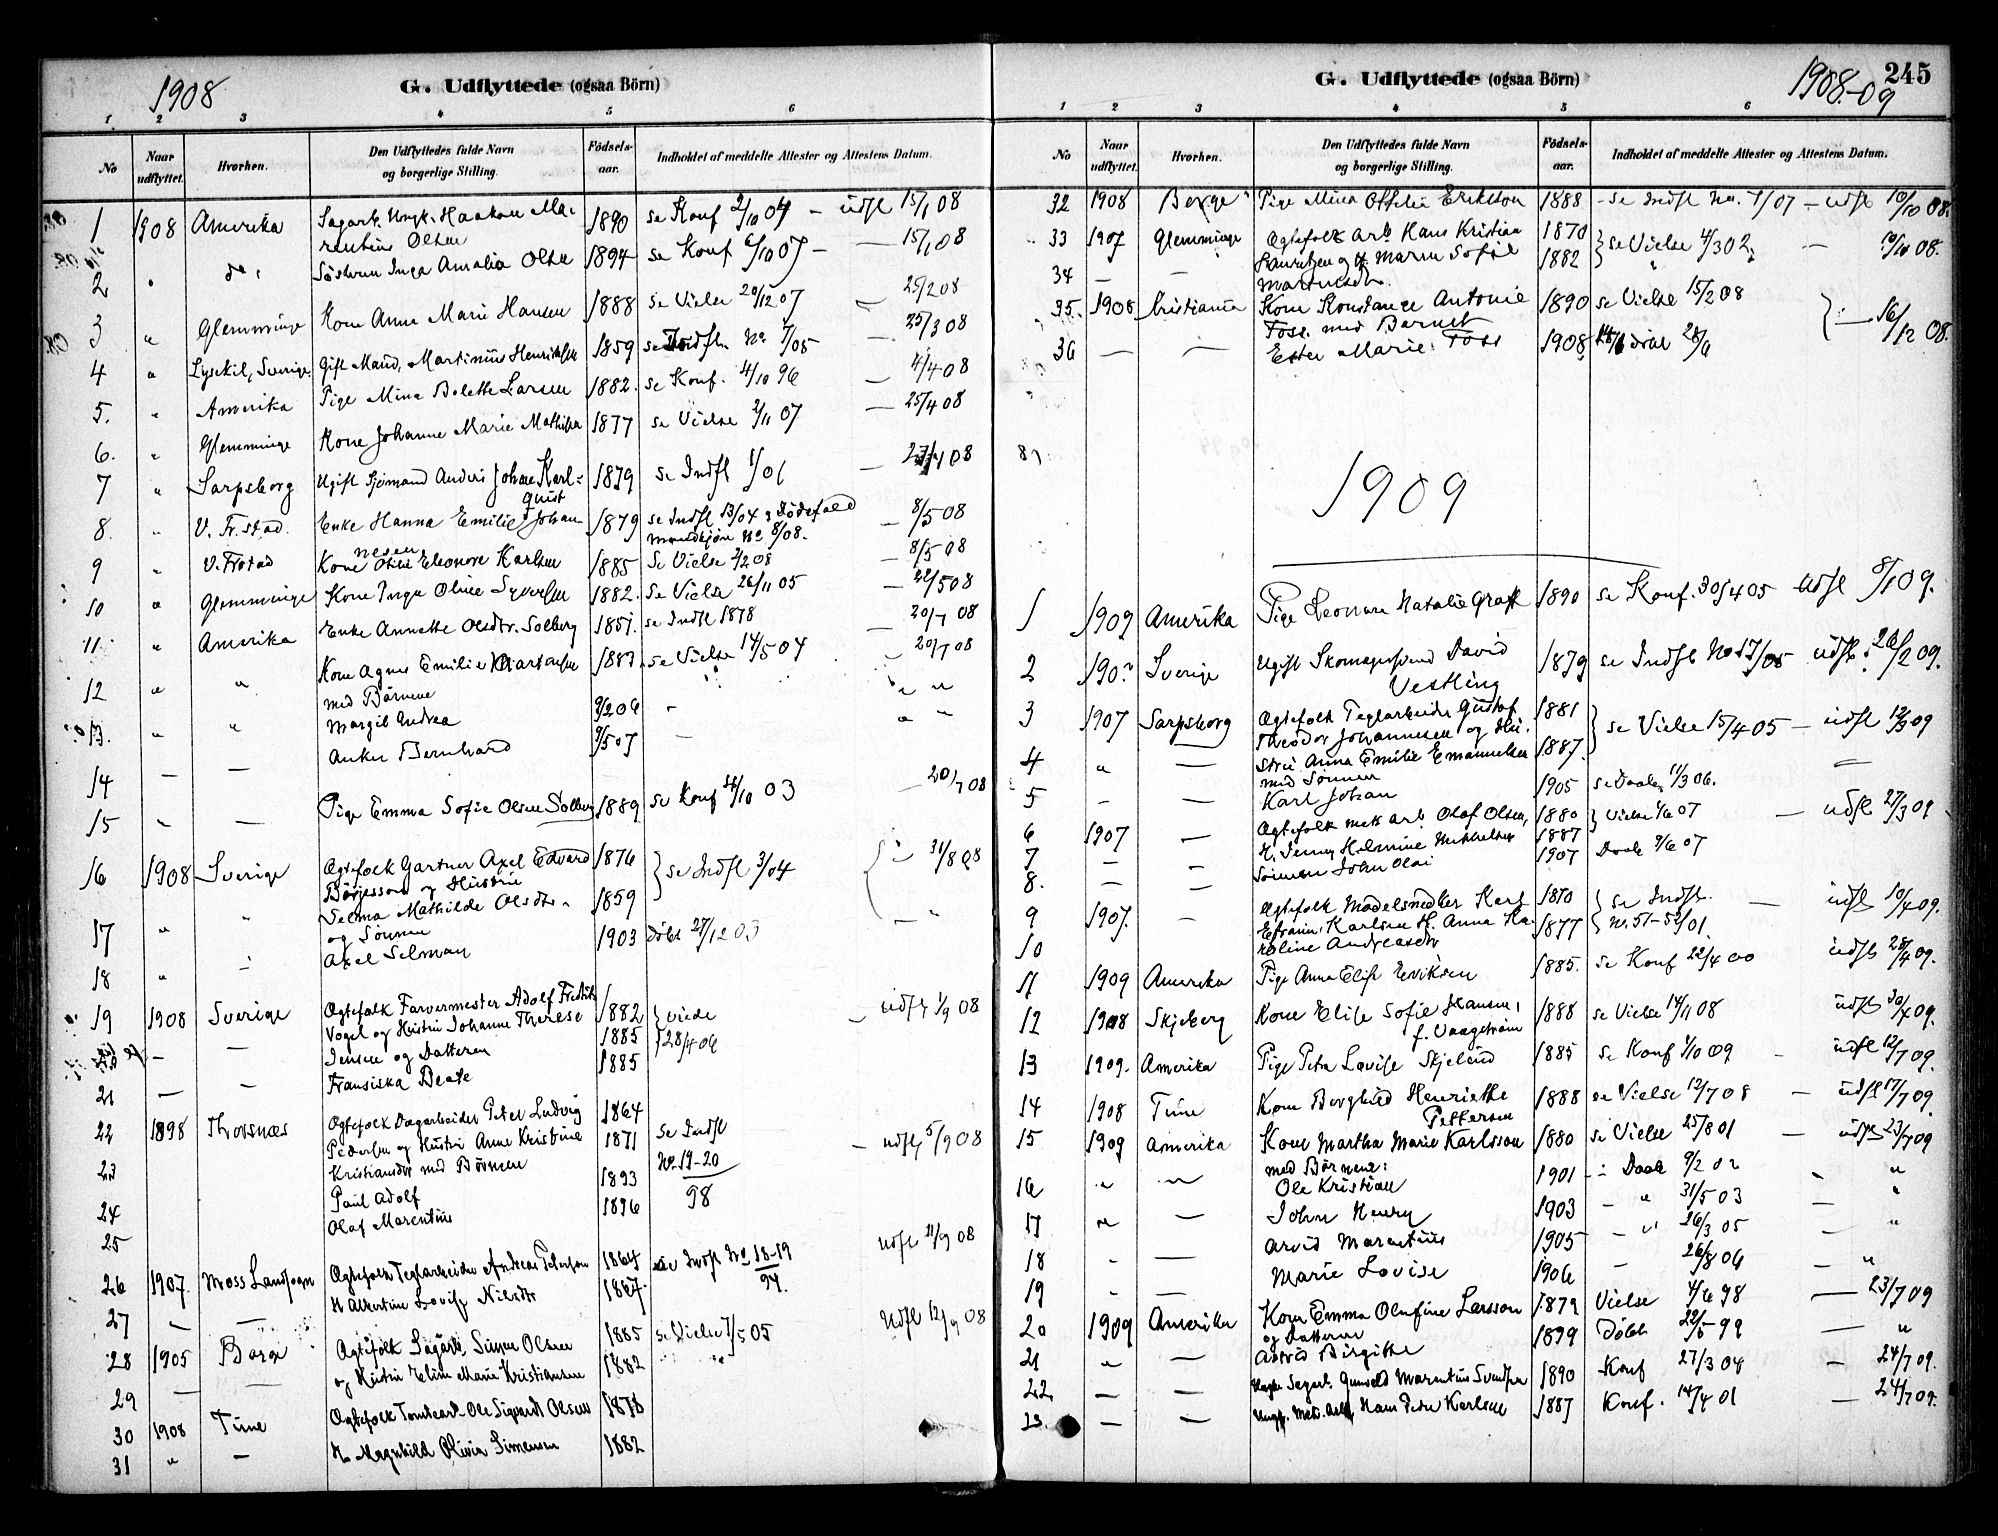 1908
G. Udflyttede (ogsaa Börn)
1. 2 3 4 5 6
No Naar udflyttet. Hvorhen. Den Udflyttedes fulde Navn og borgerlige Stilling. Födsels-aar. Indholdet af meddelte Attester og Attestens Datum.
1 1908 Amerika Sagarb. Ungk. Haakon Ma- 1890 se Konf 2/10 04 – udfl 15/1 08
rentius Olsen
2 " do Søsteren Inga Amalia Olsen 1894 se Konf 6/10 07 – — 15/1 08
3 " Glemminge Kone Anne Marie Hansen 1888 se Vielse 20/12 07 — 25/2 08
4 " Lysekil, Sverige. Gift Mand, Martinius Henriksen 1859 se Indfl. No 7/05 — 25/3 08
5. " Amerika Pige Mina Bolette Larsen 1882. se Konf. 4/10 96 — 4/4 08
6. " Glemminge Kone Johanne Marie Mathisen 1877 se Vielse 2/11 07 — 25/4 08
7 " Sarpsborg Ugift Sjömand Anders Johan Karl- 1879 se Indfl 1/01 — 08
quist
8. " V. Fr.stad. Enke Hanna Emilie Johan- 1879 se Indfl 13/04 & Dödsfald — 8/5 08
nesen mandkjön No 8/08.
9 " V. Frstad Kone Otilie Eleonore Karlsen 1885 Se Vielse 2/2 08 — 8/5 08
10 " Glemminge Kone Inga Oline Syversen 1882. Se Vielse 26/11 05 — 22/5 08
11 " Amerika Enke Annette Olsdtr. Solberg 1851. se Indfl 1878 — 20/7 08
12 " " Kone Agnes Emilie Martinsen 1887. se Vielse 14/5 04 — 20/7 08
med Börnene
13. " " Margit Andrea 9/2 06 – " "
14 — — Anker Bernhard 9/5 07 — " "
15 — — Pige Emma Sofie Olsen Solberg 1889 se Konf 4/10 03 — 20/7 08
16 1908 Sverige Ægtefolk Gartner Axel Edvard 1876 se Indfl 3/04 — 31/8 08
Börjesson og Hustru
17 " " Selma Mathilde Olsdtr. 1859 — "
og Sønnen
18 " — Axel Selman 1903 Döbt 27/12 03
19 1908 Sverige Ægtefolk Farvermester Adolf Fredrik 1882 viede — udfl 1/9 08
Vogel og Hustru Johanne Therese 1885 28/4 06
— — Jensen og Datteren 1885
21 — — Fransiska Beate
22 1898 Thorsnæs Ægtefolk Dagarbeider Peter Ludvig 1864 se Indfl — udfl 5/9 08
23 Pedersen og Hustru Anne Kristine 1871 No 19-20
Kristiansdtr med Börnene 98
24 Paul Adolf 1893
25 Olaf Marentius 1896
26 1907. Moss Landsogn Ægtefolk Teglarbeider Andreas Petersen 1864 se Indfl No 18-19 udfl 11/9 08
27 — — H Albertine Lovise Nilsdtr 1867. 97.
28 1905 Borge Ægtefolk Sagarb. Simen Olsen 1885 se Vielse 7/5 05 Udfl 12/9 08
29 — — og Hustru Eline Marie Kristiansen 1882 "
30 1908 Tune Ægtefolk Tomtearb. Ole Sigvardt Olsen 1878
31 " — H Magnhild Olivia Simensen 1882
G. Udflyttede (ogsaa Börn)
1908-09
245
1 2 3 4 5 6
No Naar udflyttet. Hvorhen. Den Udflyttedes fulde Navn og borgerlige Stilling. Födsels-aar. Indholdet af meddelte Attester og Attestens Datum.
32 1908 Borge Pige Mina Ottilie Eriksson 1888 – se Indfl No. 7/07 – udfl 10/10 08.
33 1907 Glemminge Ægtefolk Arb. Hans Kristian 1870 se Vielse 4/3 02 — 10/10 08.
34 — — Lauritzen og H. Maren Sofie 1882 "
Martinsen
35. 1908 Kristiania Kone Konstanze Antonie 1890 se Vielse 15/2 08 — 16/12 08.
Foss. med Barnet
36 — — Ester Marie Foss 1908 døbt 28/6
1909
1 1909 Amerika Pige Leonore Natalie Graff 1890 se Konf. 30/4 05 Udfl 8/1 09.
2 190? Sverige Ugift Skomagersvend David 1879 se Indfl No 17/05 udfl. 26/2 09.
Vestling
3 1907 Sarpsborg Ægtefolk Teglarbeider Gustaf 1881 se Vielse 15/4 05 – udfl 12/3 09
Theodor Johannesen og Hu-
4 " — stru Anna Emilie Emanuelsen 1887. —
med Sønnen
5 – — Karl Johan 1905 se Daab 11/3 06.
6 1907 — Ægtefolk Mek arb. Olaf Olsen, 1880 Vielse 1/6 07 — udfl 27/3 09
7 — — H. Jenny Helmine Mikkelsen 1887
8. — — Sönnen John Olai 1907 Daab 9/6 07
9 1907. – Ægtefolk Modelsnedker Karl 1870 se Indfl. — udfl 10/4 09.
10 Efraim Karlsen H. Anna Ka- 1877 No. 51-52/01
roline Andreasdtr
11 1909 Amerika Pige Anna Elise Eriksen 1885. se Konf 22/4 00 udfl 28/4 09.
12 1908 Skjeberg Kone Elise Sofie Hansen, 1888 se Vielse 14/11 08 udfl 30/4 09.
f. Vaagström
13 1909. Amerika Pige Petra Lovise Skjelind 1885 se Konf 1/10 09 – udfl 12/7 09.
14 1908 Tune Kone Borghild Henriette 1888 se Vielse 12/7 08 — udfl 17/7 09.
Pettersen
15 1909 Amerika Kone Martha Marie Karlsson 1880 se Vielse 25/8 01 – udfl 23/7 09
med Börnene:
16 " " Ole Kristian 1901 – Daab 9/2 02 – "
17 " — John Henry 1903 – " 31/5 03 — "
18 – — Arvid Marentius 1905 – " 26/3 05 — "
19 – — Marie Lovise 1906 – 26/8 06 – "
20 1909 Amerika Kone Emma Olufine Larsson 1879 Vielse 4/6 98 — 23/7 09
og Datteren
21 " — Astrid Birgitte 1899 Döbt 22/5 99 — "
22 — — Ungk. Sagarb. Gunvald Marentius Svendsen 1890 Konf 27/3 04 – 24/7 09.
23. — — Ungk. Mek. Arb. Hans Peter Karlsen 1887 Konf. 14/4 01 — 24/7 09.